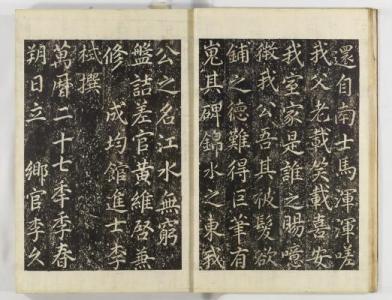 還自南士馬渾渾嗟
我父老載笑載喜安
我室家是誰之賜噫
微我公吾其被髮欲
鋪之德難得巨筆有
嵬其碑錦水之東我
公之名江水無窮
盤詰差官黃維啓兼
修 成均館進士李
栻撰
萬曆二十七秊季春
朔日立 鄉官李久